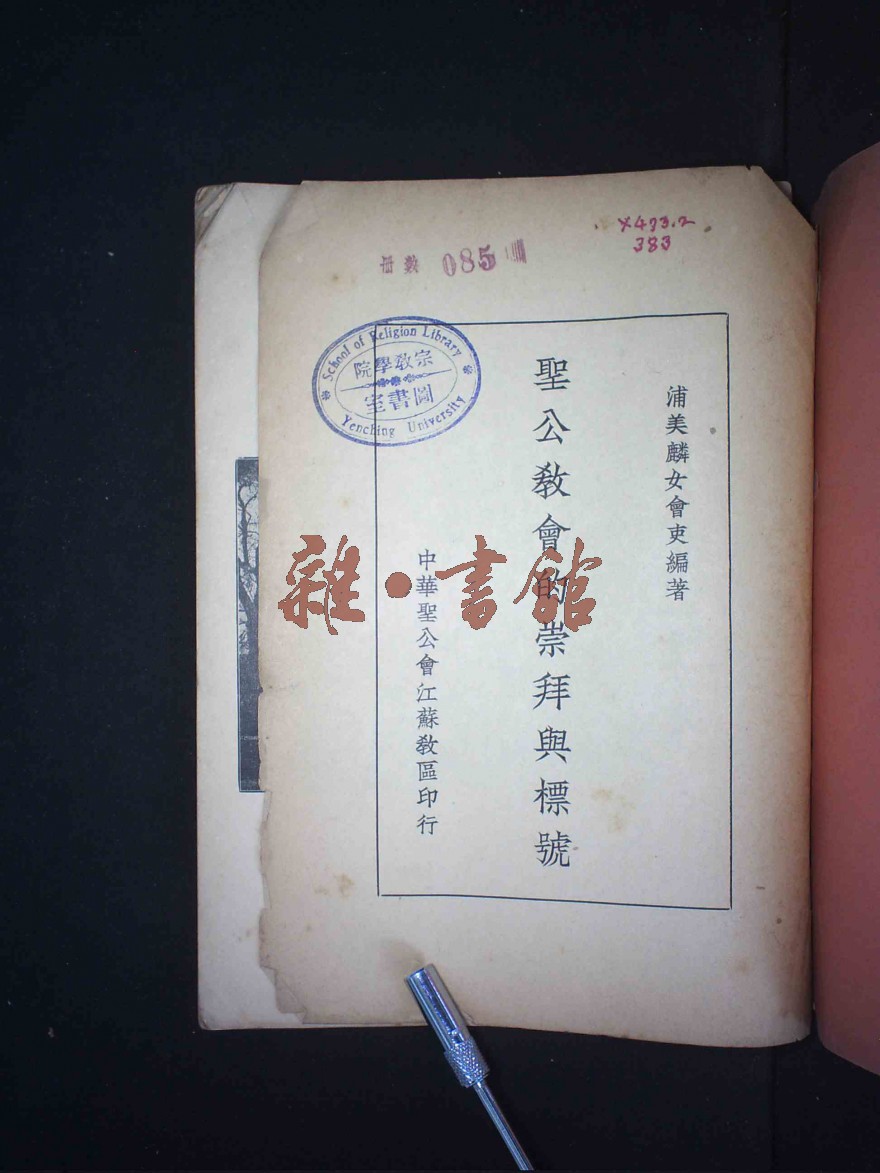 X493.2
383
冊數 085
School of Religion Library
宗教學院
圖書室
Yenching University
浦美麟女會吏編著
聖公教會的崇拜與標號
中華聖公會江蘇教區印行
雜·書館